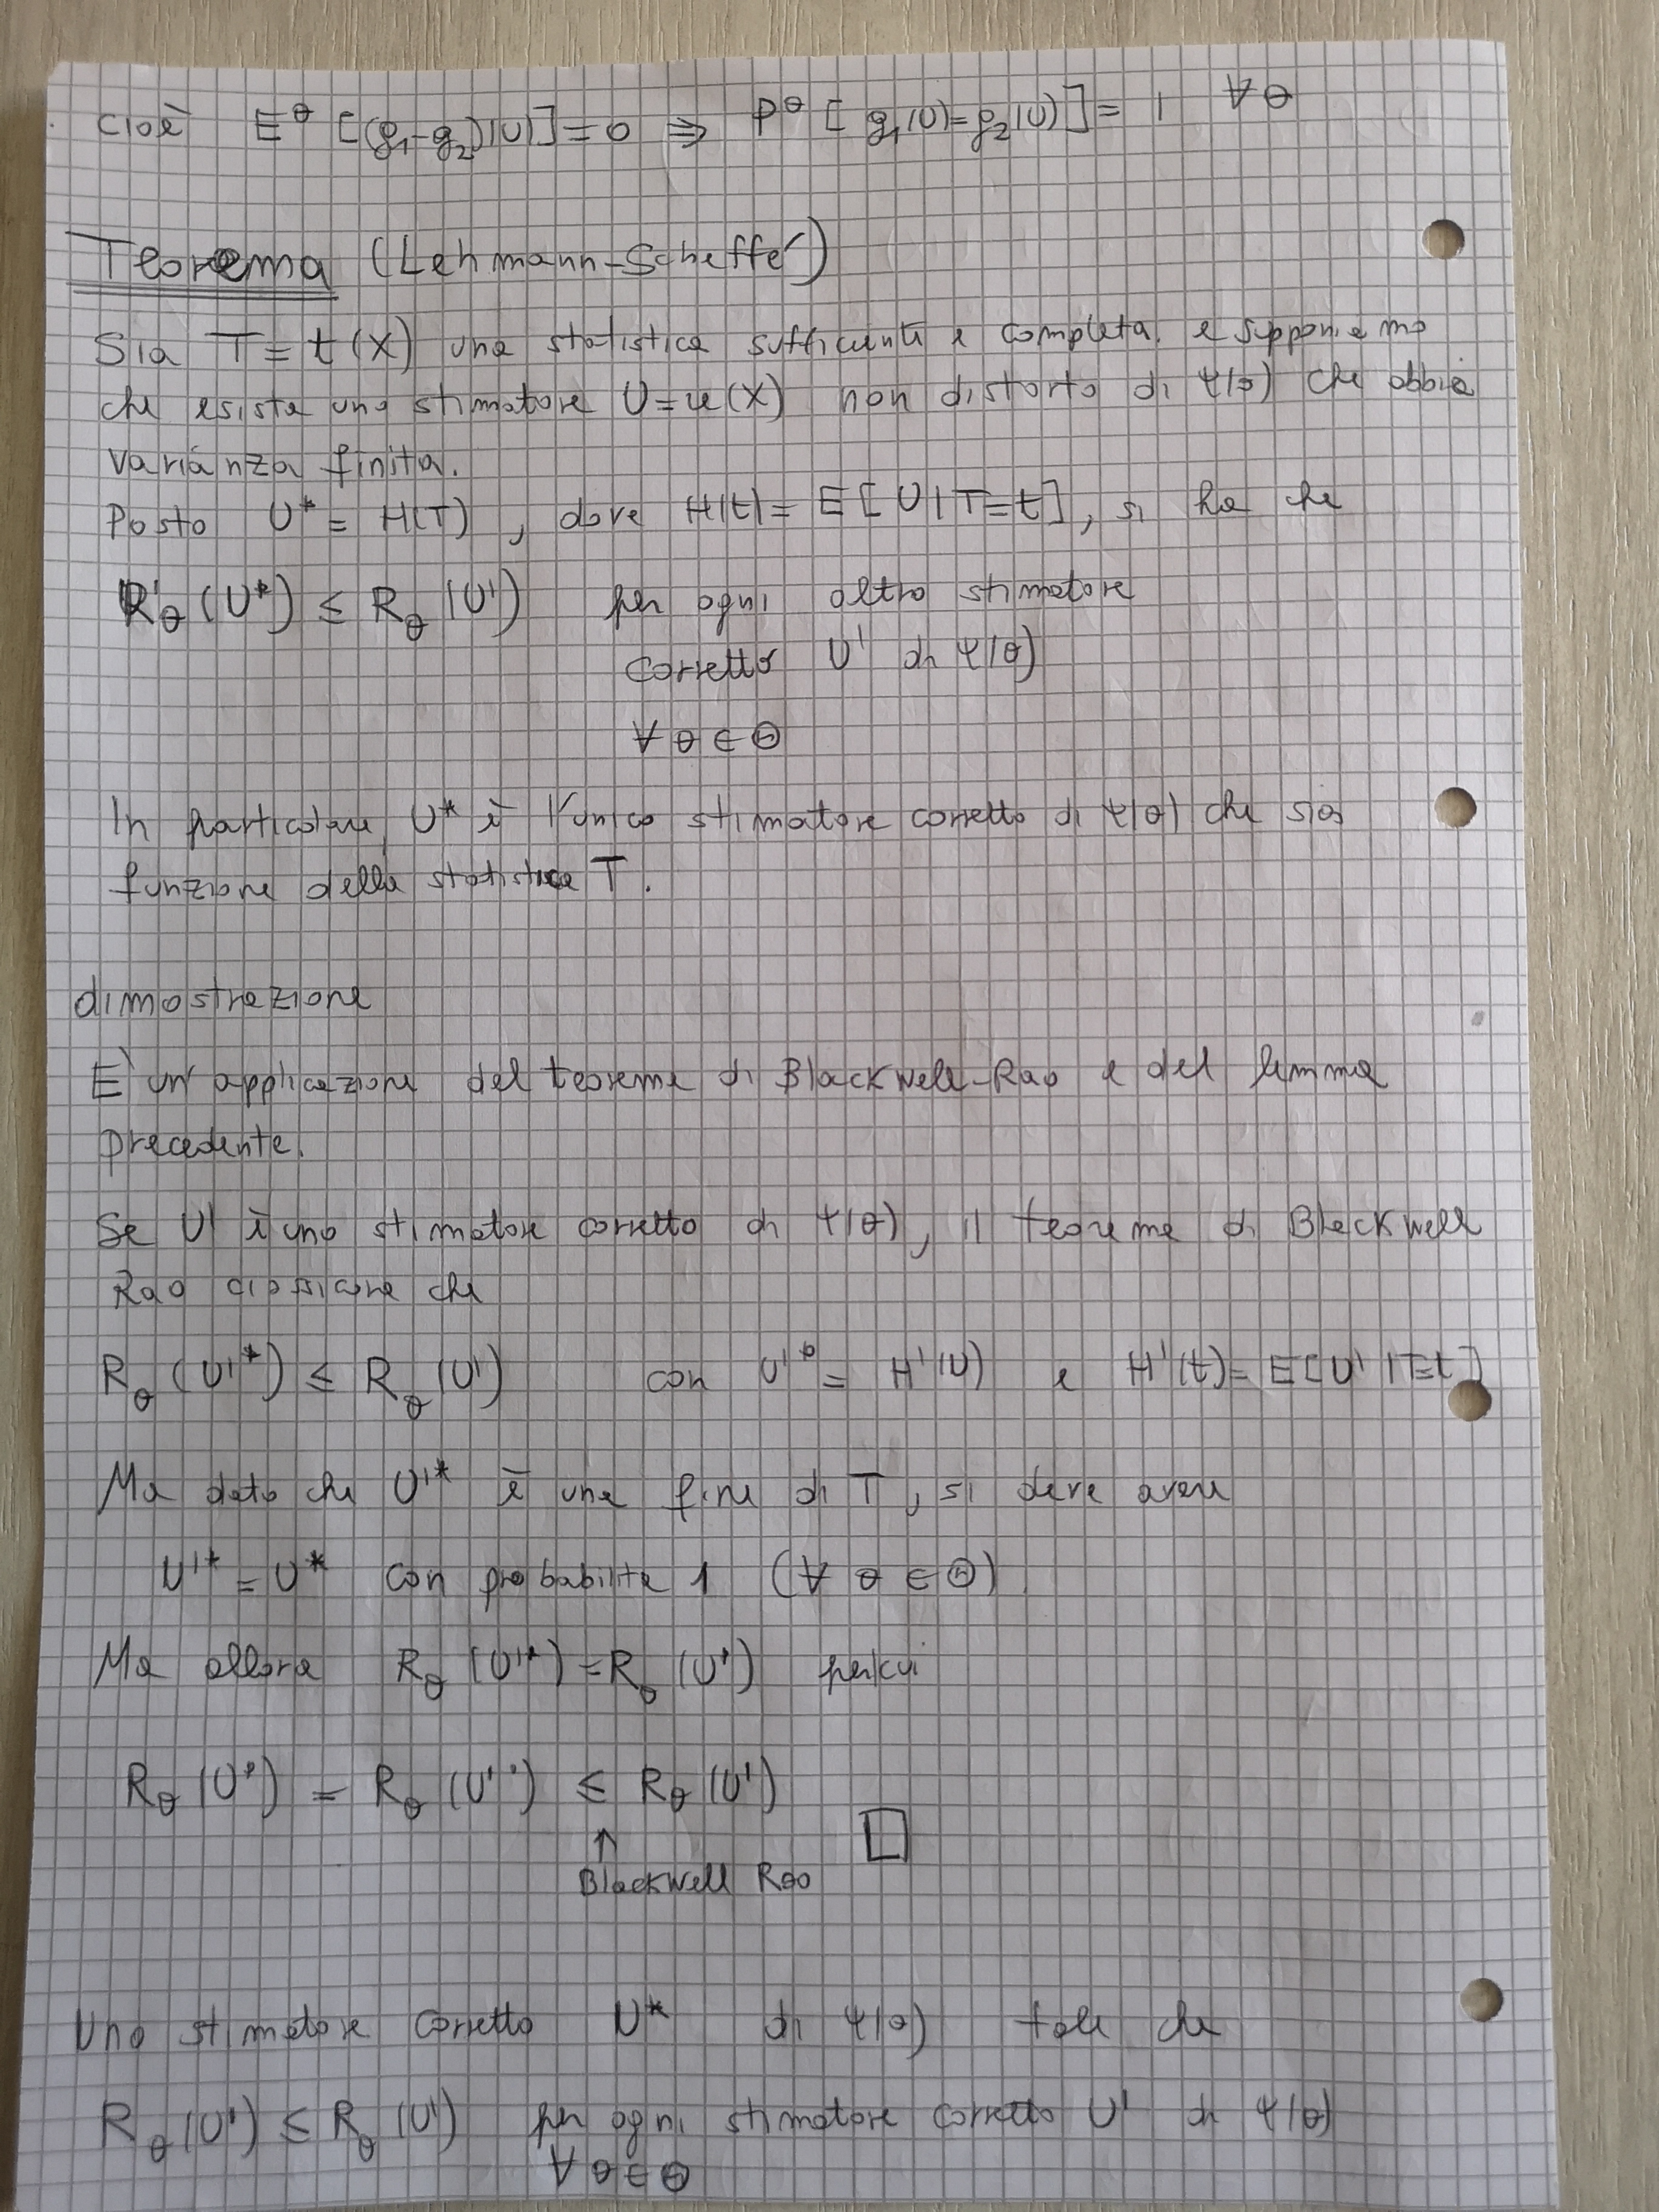 cioè E^θ [(g₁-g₂)(U)] = 0 ⇒ P^θ [g₁(U)=g₂(U)] = 1 ∀θ
Teorema (Lehmann-Scheffé)
Sia T = t(X) una statistica sufficiente e completa. e supponiamo
che esista uno stimatore U=u(X) non distorto di ψ(θ) che abbia
varianza finita.
Posto U* = H(T), dove H(t)= E[U|T=t], si ha che
R_θ(U*) ≤ R_θ(U') per ogni altro stimatore
corretto U' di ψ(θ)
∀ θ ∈ Θ
In particolare, U* è l'unico stimatore corretto di ψ(θ) che sia
funzione della statistica T.
dimostrazione
E' un'applicazione del teorema di Blackwell-Rao e del lemma
precedente.
Se U' è uno stimatore corretto di ψ(θ), il teorema di Blackwell
Rao assicura che
R_θ(U'*) ≤ R_θ(U') con U'* = H'(U) e H'(t)= E[U'|T=t]
Ma dato che U'* è una fzne di T, si deve avere
U'* = U* con probabilità 1 (∀ θ ∈ Θ)
Ma allora R_θ(U'*) = R_θ(U*) per cui
R_θ(U*) = R_θ(U'*) ≤ R_θ(U')
↑
Blackwell Rao □
Uno stimatore corretto U* di ψ(θ) tale che
R_θ(U*) ≤ R_θ(U') per ogni stimatore corretto U' di ψ(θ)
∀ θ ∈ Θ